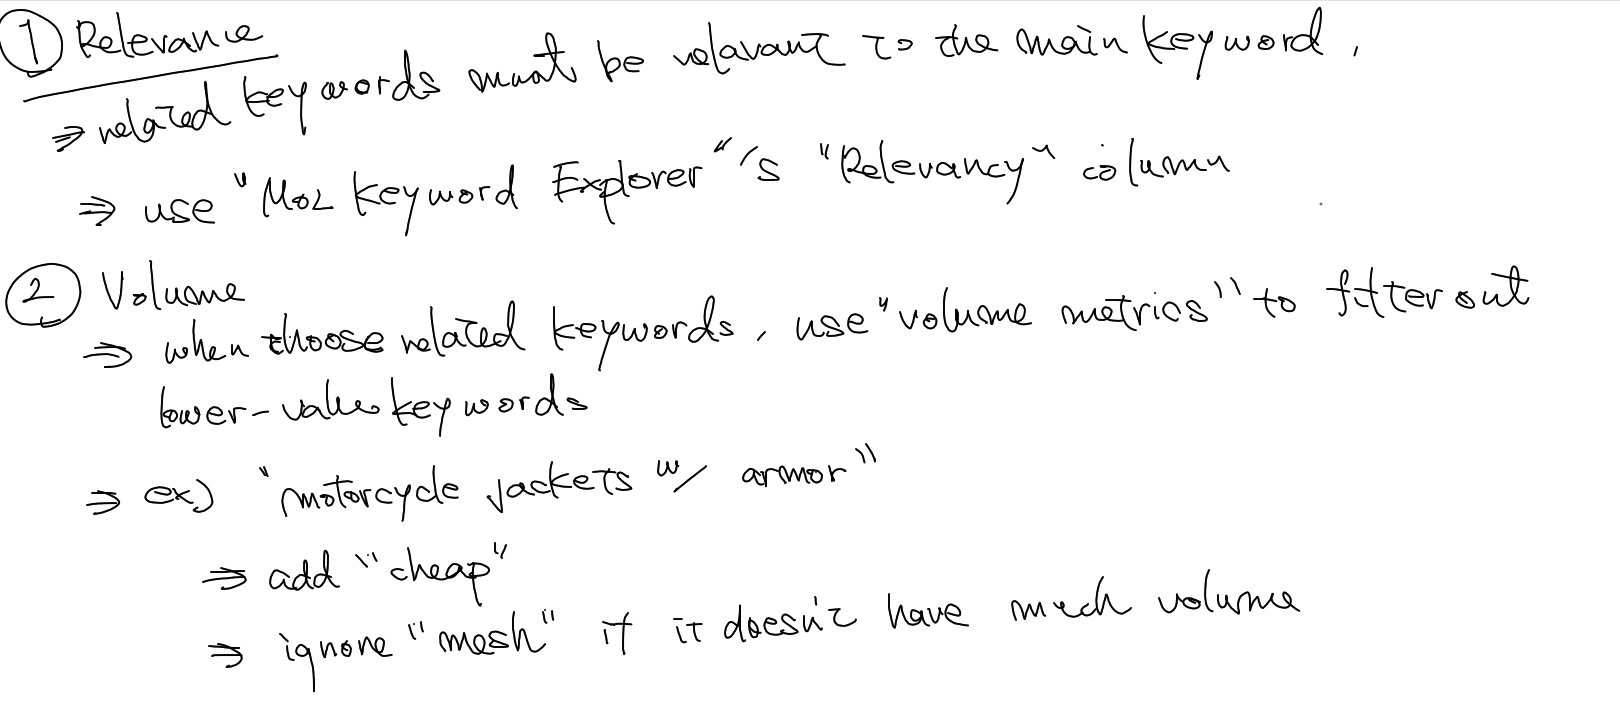 ① Relevance
⇒ related keywords must be relavant to the main keyword.
⇒ use "Moz Keyword Explorer"'s "Relevancy" column
② Volume
⇒ when choose related keywords, use "volume metrics" to filter out
lower-value keywords
⇒ ex) "motorcycle jackets w/ armor"
⇒ add "cheap"
⇒ ignore "mesh" if it doesn't have much volume